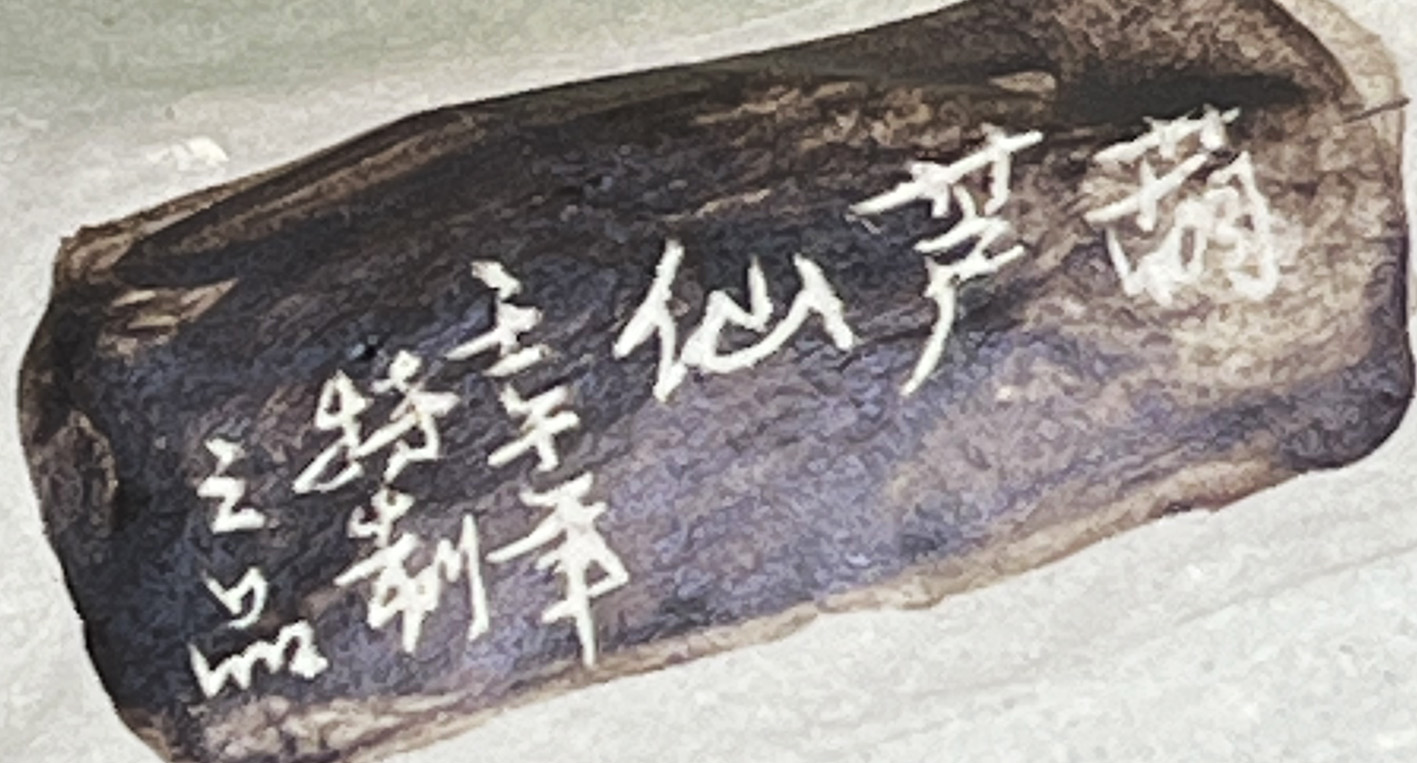 葫芦仙
壬午年
特制
之品